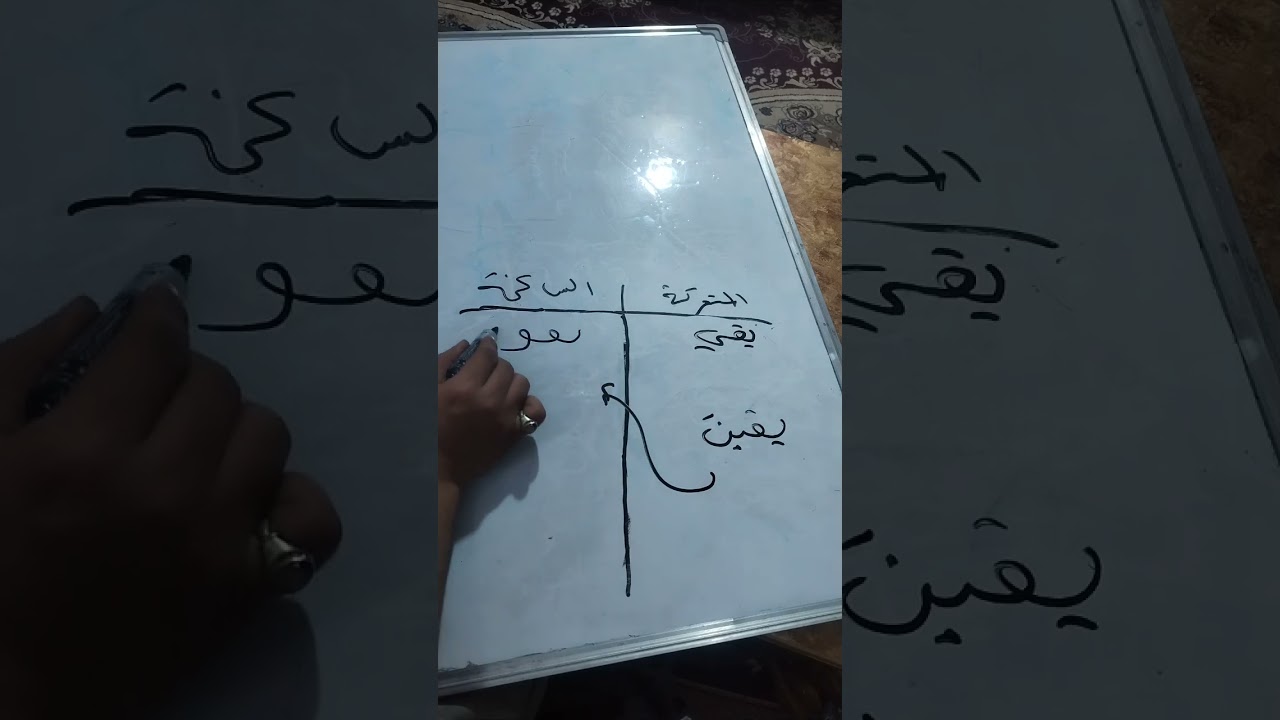 المتحركة الساكنة
يقي نفو
يقين